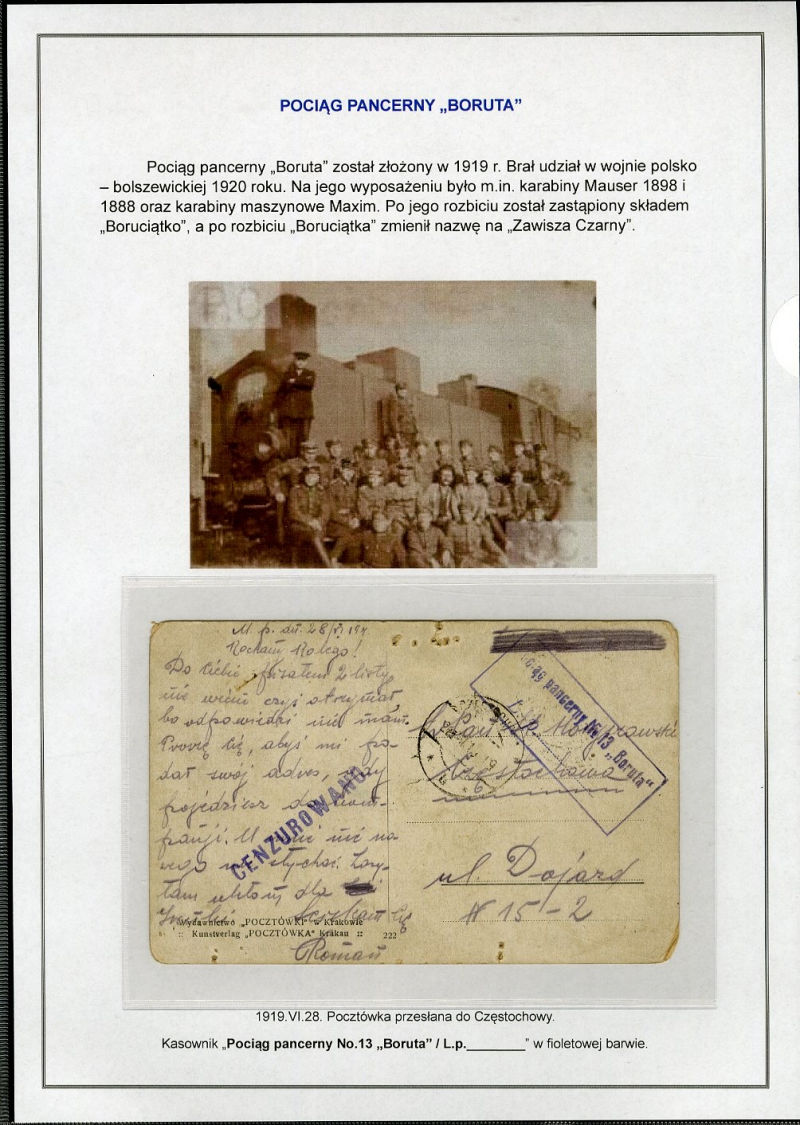 POCIĄG PANCERNY „BORUTA”
Pociąg pancerny „Boruta” został złożony w 1919 r. Brał udział w wojnie polsko
– bolszewickiej 1920 roku. Na jego wyposażeniu było m.in. karabiny Mauser 1898 i
1888 oraz karabiny maszynowe Maxim. Po jego rozbiciu został zastąpiony składem
„Boruciątko”, a po rozbiciu „Boruciątka” zmienił nazwę na „Zawisza Czarny”.
P.C
P.C
M. p. dn. 28/VI 19
Kochany Kolego!
Do Ciebie pisałem 2 listy
nie wiem czyś otrzymał
bo odpowiedzi nie mam.
Proszę Cię, abyś mi po-
dał swój adres, kiedy
pojedziesz do kom-
panji. U mnie nic no-
wego nie słychać. Zasy-
łam ukłony dla
Ściskam Cię
Roman
CENZUROWANO
Wydawnictwo „POCZTÓWKI” w Krakowie
:: Kunstverlag „POCZTÓWKA” Krakau :: 222
pancerny No 13 „Boruta”
L.p.
Częstochowa
ul. Dojazd
N 15-2
1919.VI.28. Pocztówka przesłana do Częstochowy.
Kasownik „Pociąg pancerny No.13 „Boruta” / L.p.________” w fioletowej barwie.